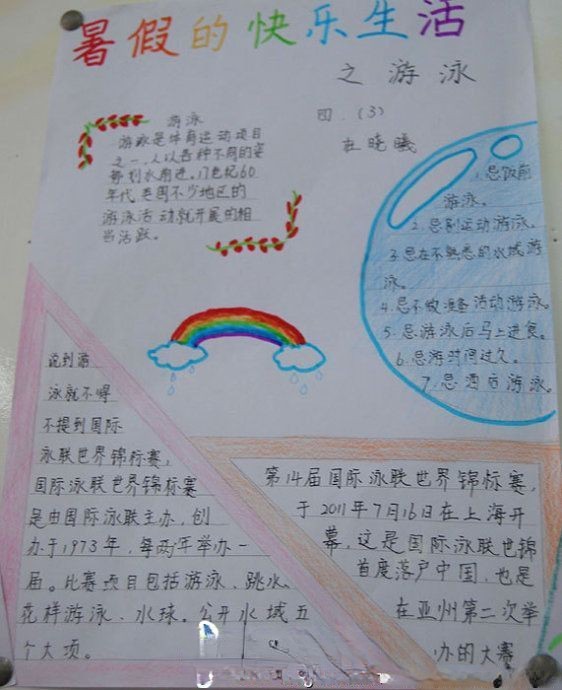 暑假的快乐生活
之游泳
四.(3)
晓曦
游泳
游泳是体育运动项目
之一,人以各种不同的姿
势划水前进。17世纪60
年代英国不少地区的
游泳活动就开展的相
当活跃。
1.忌饭前
游泳。
2.忌剧运动游泳。
3.忌在不熟悉的水域游
泳。
4.忌不做准备活动游泳。
5.忌游泳后马上进食。
6.忌游时间过久。
7.忌酒后游泳。
说到游
泳就不得
不提到国际
泳联世界锦标赛,
国际泳联世界锦标赛
是由国际泳联主办,创
办于1973年,每两年举办一
届。比赛项目包括游泳、跳水、
花样游泳、水球。公开水域五
个大项。
第14届国际泳联世界锦标赛,
于2011年7月16日在上海开
幕,这是国际泳联世锦
首度落户中国,也是
在亚州第二次举
办的大赛